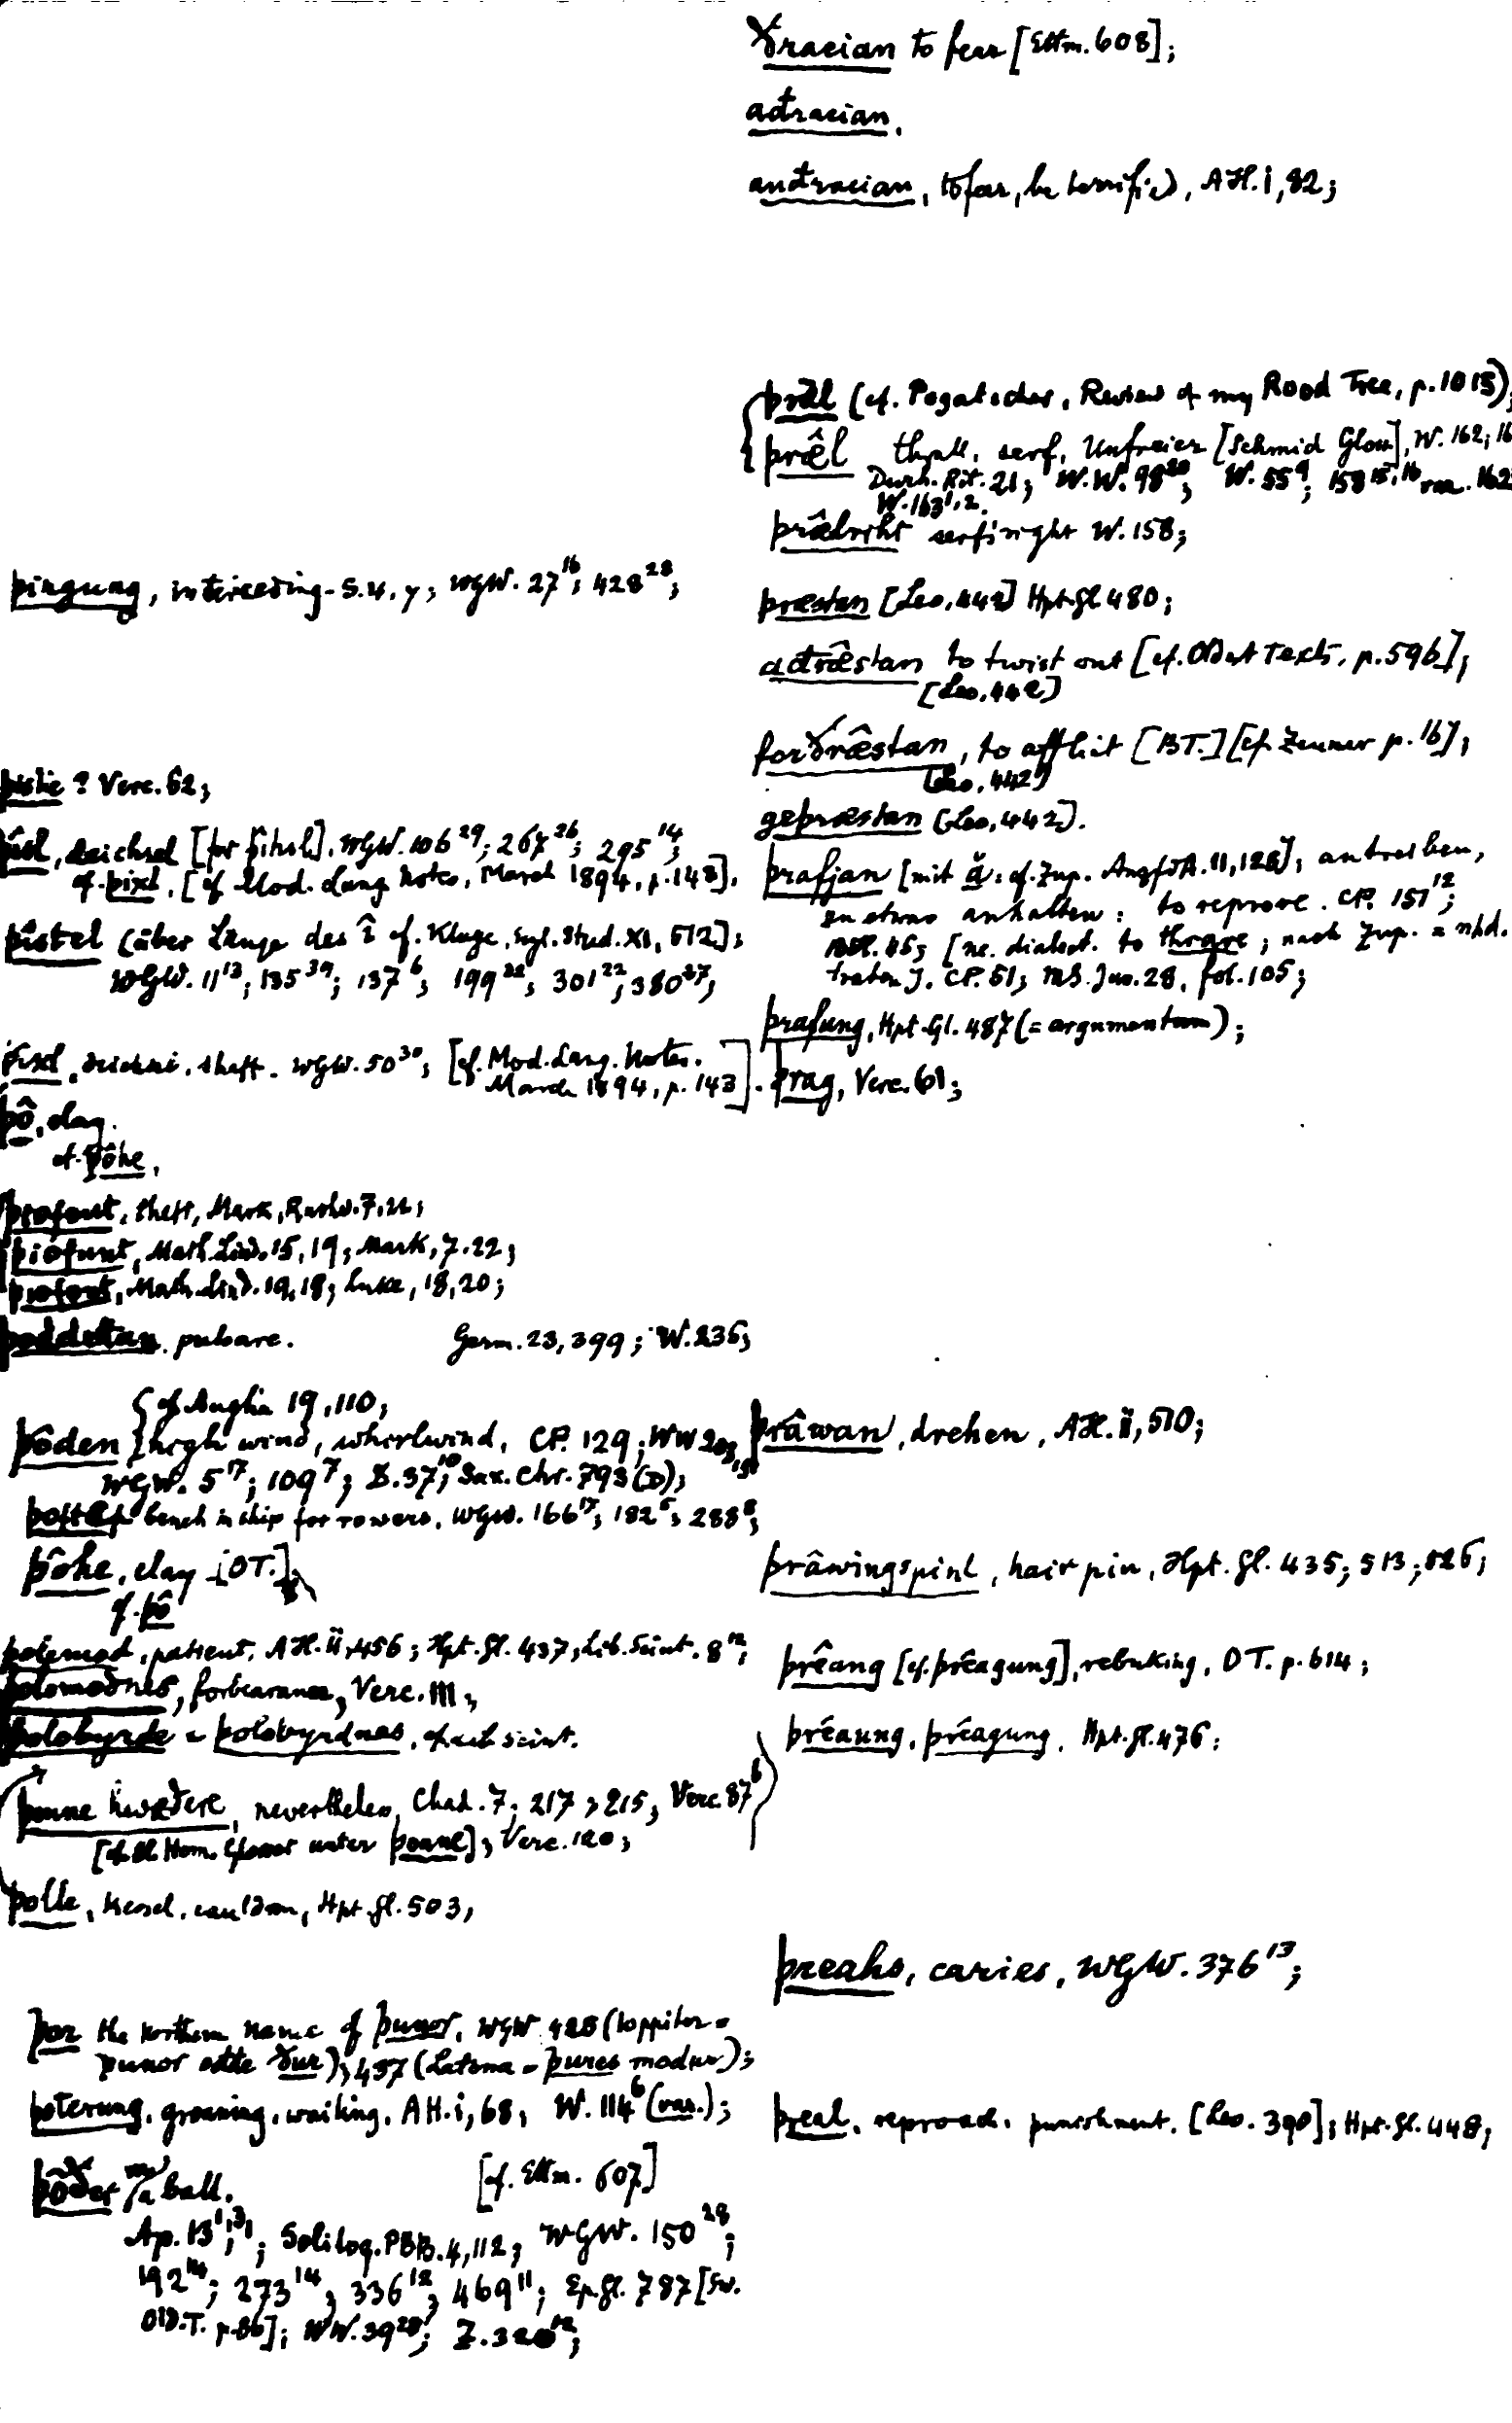 þingung, interceding. S.u. y; WGW. 27¹⁶; 428²⁸;
? Verc. 62;
deichsel [for þîhsl], WGW. 106²⁹; 267²⁶; 295¹⁴;
cf. þixl, [cf Mod. Lang Notes, March 1894, p. 143].
þîstel (über Länge des î cf. Kluge, Engl. Stud. XI, 512);
WGW. 11¹³; 135³⁹; 137⁶; 199²²; 301²²; 380³⁷;
þixl, shaft. WGW. 50³⁰; [cf. Mod. Lang. Notes.
March 1894, p. 143].
þô, clay.
cf. þôhe.
theft, Mark, Rushw. 7, 22;
þiofunt, Math. Lind. 15, 19; Mark, 7.22;
þiofont, Math. Lind. 19, 18; Luke, 18, 20;
þoddettan, pulsare. Germ. 23, 399; W. 236;
{cf Anglia 19, 110;
þôden {high wind, whirlwind, CP. 129; WW 203,
WGW. 5¹⁷; 109⁷; 37¹⁰; Sax. Chr. 793 (D);
bench in ship for rowers, WGW. 166¹⁷; 182⁵; 288⁸;
þôhe, clay [OT.];
cf. þô
þolemod, patient, AH. ii, 456; Hpt. Gl. 437; Lib. Scint. 8¹²;
þolomodnes, forbearance, Verc. 111;
þolobyrde = þolobyrdnes, cf Lib scint.
þonne hwæðere, nevertheless, Chad. 7; 217; 215; Verc. 87⁶
[cf Bl Hom. Glossar unter þonne]; Verc. 120;
þolle, Kessel, cauldron, Hpt. Gl. 503;
þor the northern name of þunor, WGW. 428 (Ioppiter =
þunor oððe ður); 437 (Latona = þures modur);
þoterung, groaning, wailing, AH. i, 68; W. 114⁶ (var.);
þôðer m a ball. [cf. Ettm. 607]
Ap. 13¹; ³¹; Soliloq. PBB. 4, 112; WGW. 150²⁸;
192¹⁴; 273¹⁴; 336¹²; 469¹¹; Ep. Gl. 787 [Sw.
OldT. p. 86]; WW. 39²⁸; Z. 320¹²;
ðracian to fear [Ettm. 608];
aðracian.
anðracian, to fear, be terrified, AH. i, 82;
þræl (cf. Pogatscher, Review of my Rood Tree, p. 1015);
þrǽl thrall, serf, Unfreier [Schmid Gloss], W. 162; 16
Durh. Rit. 21; W.W. 98²⁰; W. 55⁹; 158¹⁵,¹⁶ var. 162
W. 163¹,².
þrǽlriht serf's right W. 158;
þræstan [Leo, 442] Hpt. Gl 480;
aðrǽstan to twist out [cf. Oldest Texts, p. 596];
[Leo. 442]
forðrǽstan, to afflict [BT.] [cf. Zeuner p. 16];
[Leo, 442]
geþræstan [Leo, 442].
þrafjan [mit ă: cf. Zup. Anz f dA. 11, 128]; antreiben,
zu etwas anhalten: to reprove. CP. 151¹²;
[ne. dialect. to thrave; nach Zup. = nhd.
]. CP. 51; MS. Jun. 28, fol. 105;
þrafung, Hpt. Gl. 487 (= argumentum);
þrag, Verc. 61;
þrâwan, drehen, AH. ii, 510;
þrâwingspinl, hair pin, Hpt. Gl. 435; 513; 526;
þrêang [cf. þrêagung], rebuking, OT. p. 614;
þréaung, þréagung, Hpt. Gl. 476;
þreahs, caries, WGW. 376¹³;
þreal, reproach, punishment. [Leo. 390]; Hpt. Gl. 448;